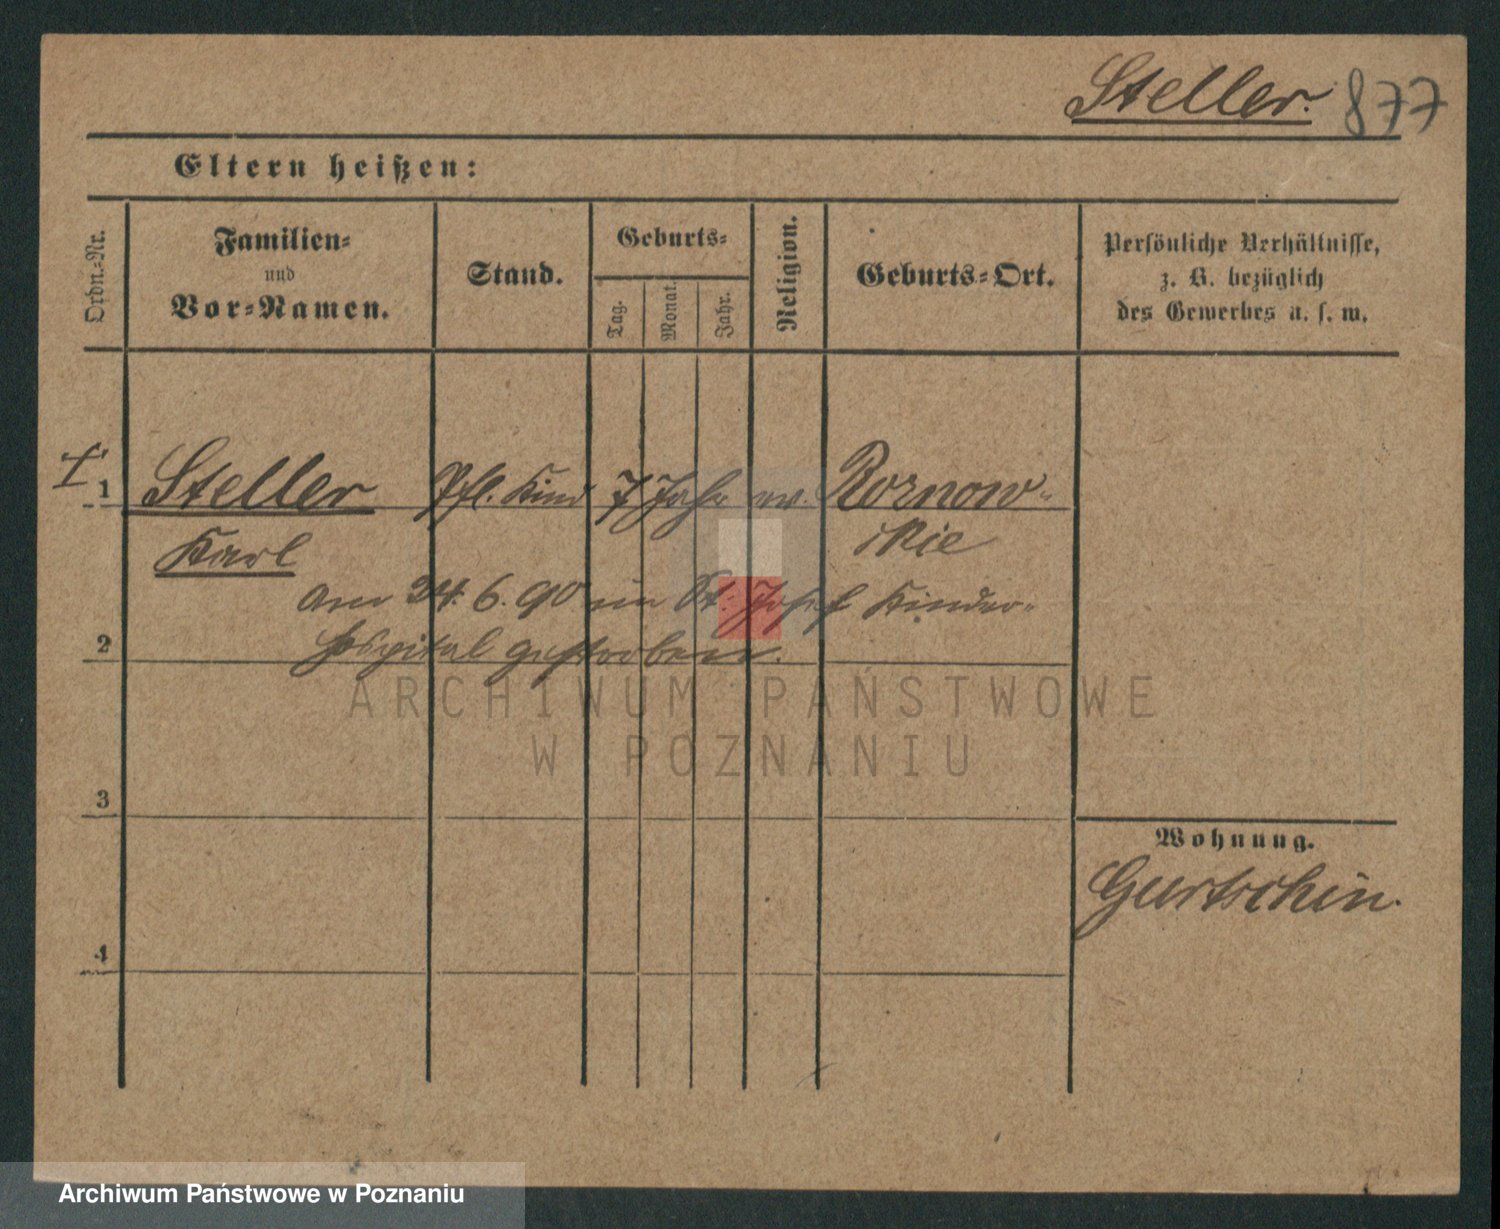 Steller. 877
Eltern heißen:
Ordn.-Nr.
Familien-
und
Vor-Namen.
Stand.
Geburts-
Tag.
Monat.
Jahr.
Religion.
Geburts-Ort.
Persönliche Verhältnisse,
z. B. bezüglich
des Gewerbes u. s. w.
† 1 Steller Pfl. Kind 7 Jahr ev. Roznow-
Karl
skie
am 24. 6. 90 im St. Josef Kinder-
hospital gestorben.
2
3
4
Wohnung.
Gurtschin.
ARCHIWUM PAŃSTWOWE
W POZNANIU
Archiwum Państwowe w Poznaniu